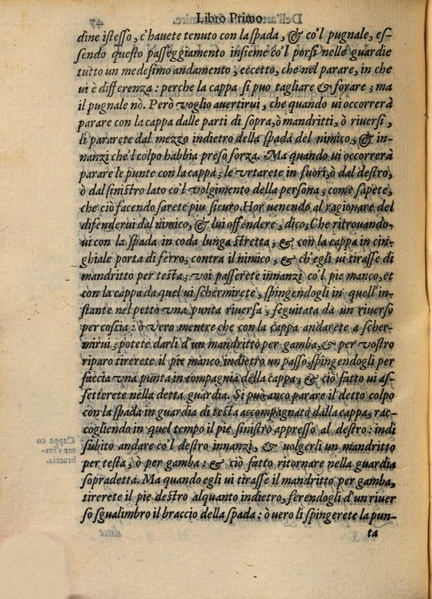 Libro Primo.
dine istesso, c'hauete tenuto con la spada, & co'l pugnale, es-
sendo questo passeggiamento insieme co'l porsi nelle guardie
tutto un medesimo andamento, eccetto, che nel parare, in che
ui è differenza: perche la cappa si puo tagliare & forare; ma
il pugnale nò. Però voglio auertirui, che quando ui occorrerà
parare con la cappa dalle parti di sopra, ò mandritti, ò riuersi,
li pararete dal mezzo indietro della spada del nimico, & in-
nanzi che'l colpo habbia preso forza. Ma quando ui occorrerà
parare le punte con la cappa; le vrtarete in fuori, ò dal destro,
ò dal sinistro lato co'l volgimento della persona; come sapete,
che ciò facendo sarete piu sicuro. Hor uenendo al ragionare del
difenderui dal nimico, & lui offendere, dico; Che ritrouando-
ui con la spada in coda lunga stretta, & con la cappa in cin-
ghiale porta di ferro, contra il nimico, & ch'egli ui tirasse di
mandritto per testa; voi passerete innanzi co'l pie manco, et
con la cappa da quel ui schermirete, spingendogli in quell'in-
stante nel petto vna punta riuersa, seguitata da un riuerso
per coscia: ò vero mentre che con la cappa andarete a scher-
mirui; potete darli d'un mandritto per gamba, & per vostro
riparo tirerete il pie manco indietro un passo, spingendogli per
faccia vna punta in compagnia della cappa; & ciò fatto ui as-
setterete nella detta guardia. Si puo anco parare il detto colpo
con la spada in guardia di testa accompagnato dalla cappa, rac-
cogliendo in quel tempo il pie sinistro appresso al destro: indi
subito andare co'l destro innanzi, & volgerli un mandritto
per testa, ò per gamba: & ciò fatto ritornare nella guardia
sopradetta. Ma quando egli ui tirasse il mandritto per gamba,
tirerete il pie destro alquanto indietro, ferendogli d'un riuer
so sgualimbro il braccio della spada: ò vero li spingerete la pun-
ta